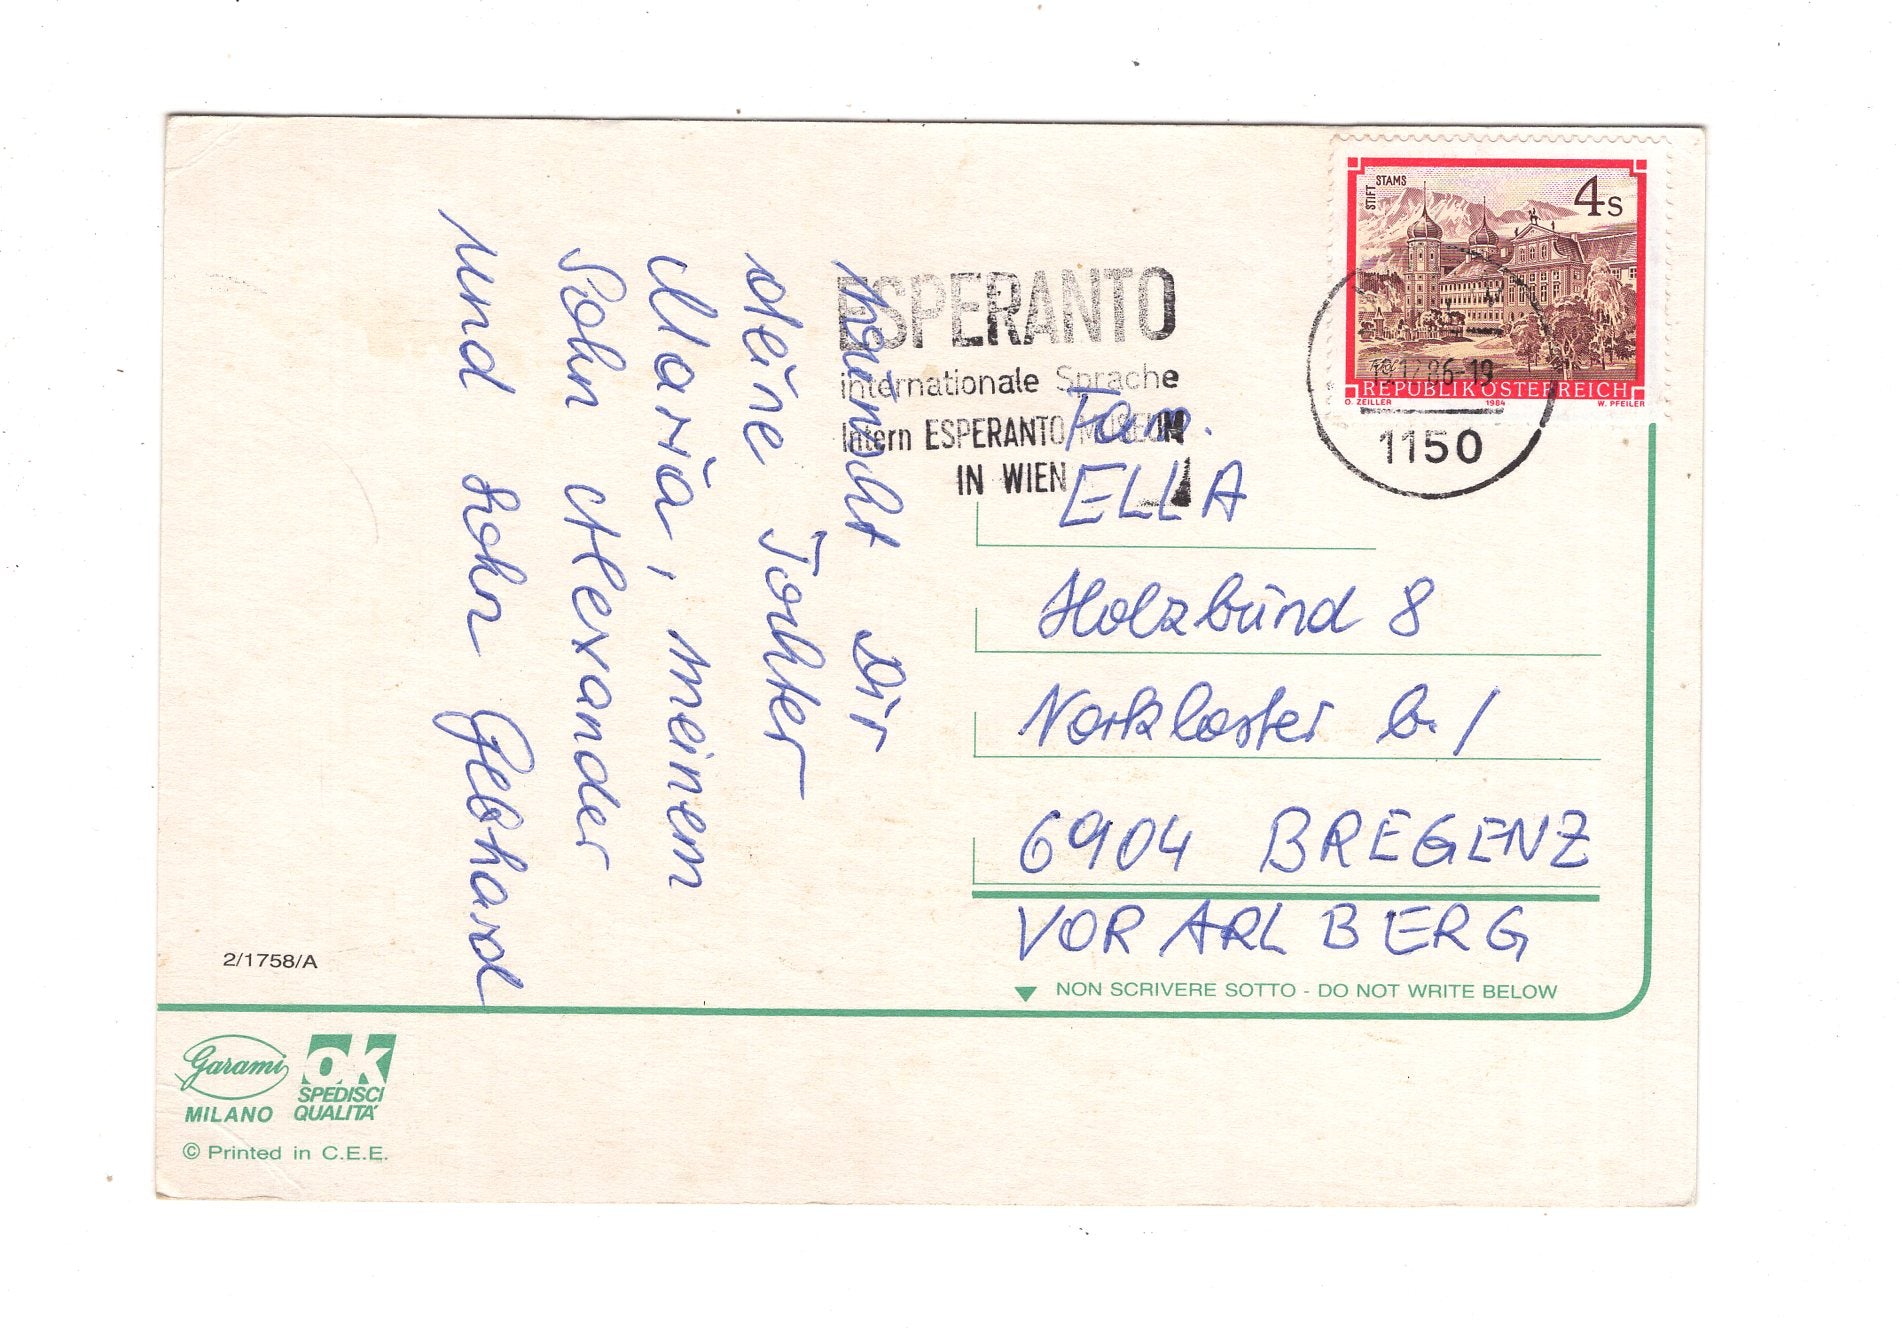 wünscht Dir
deine Tochter
Maria, meinem
Sohn Alexander
und Sohn Gebhard
ESPERANTO
internationale Sprache
Intern ESPERANTO MUSEUM
IN WIEN
STIFT STAMS
4s
REPUBLIK ÖSTERREICH
O. ZEILLER 1984 W. PFEILER
12.86-19
1150
Fam.
ELLA
Holzbünd 8
Vorkloster b. /
6904 BREGENZ
VORARLBERG
NON SCRIVERE SOTTO - DO NOT WRITE BELOW
2/1758/A
Garami
MILANO
OK
SPEDISCI
QUALITA'
© Printed in C.E.E.